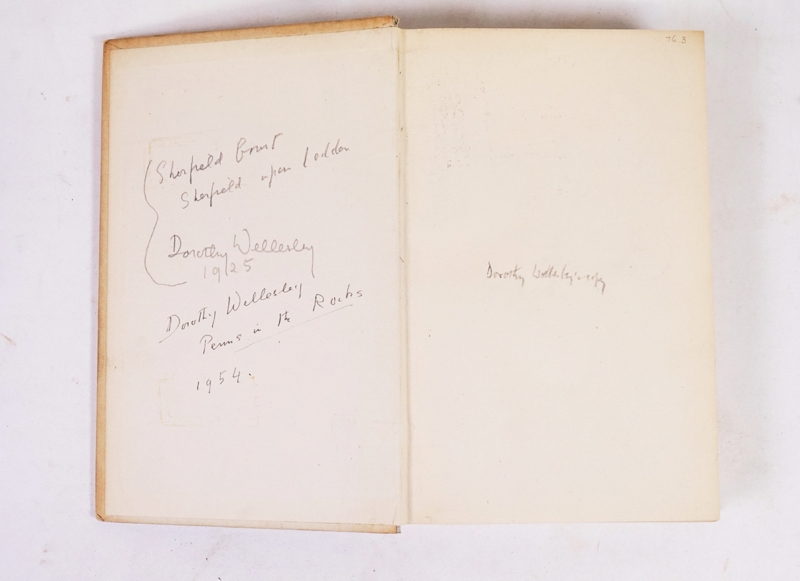 Sherfield Court
Sherfield upon Loddon
Dorothy Wellesley
1925
Dorothy Wellesley
Penns in the Rocks
1954.
Dorothy Wellesley's copy